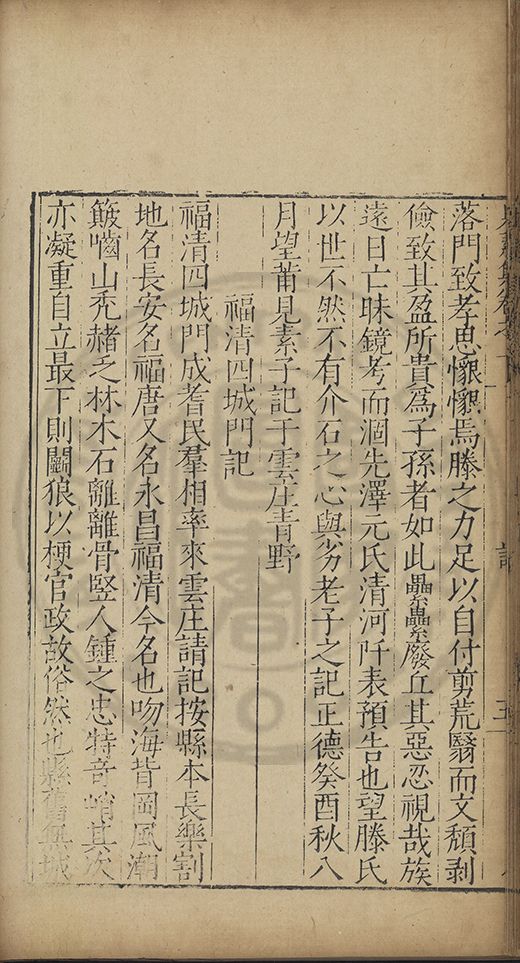 落門致孝思懷懷焉滕之力足以自付剪荒翳而文頹剥
儉致其盈所貴爲子孫者如此纍纍廢丘其惡忍視哉族
遠日亡昧鏡考而涸先澤元氏清河阡表預告也望滕氏
以世不然不有介石之心與劣老子之記正德癸酉秋八
月望莆見素子記于雲庄青野
福清四城門記
福清四城門成耆民羣相率來雲庄請記按縣本長樂割
地名長安名福唐又名永昌福清今名也吻海背岡風潮
簸嚙山禿赭乏林木石離離骨竪人鍾之忠特奇峭其次
亦凝重自立最下則鬭狼以梗官政故俗然也縣舊無城